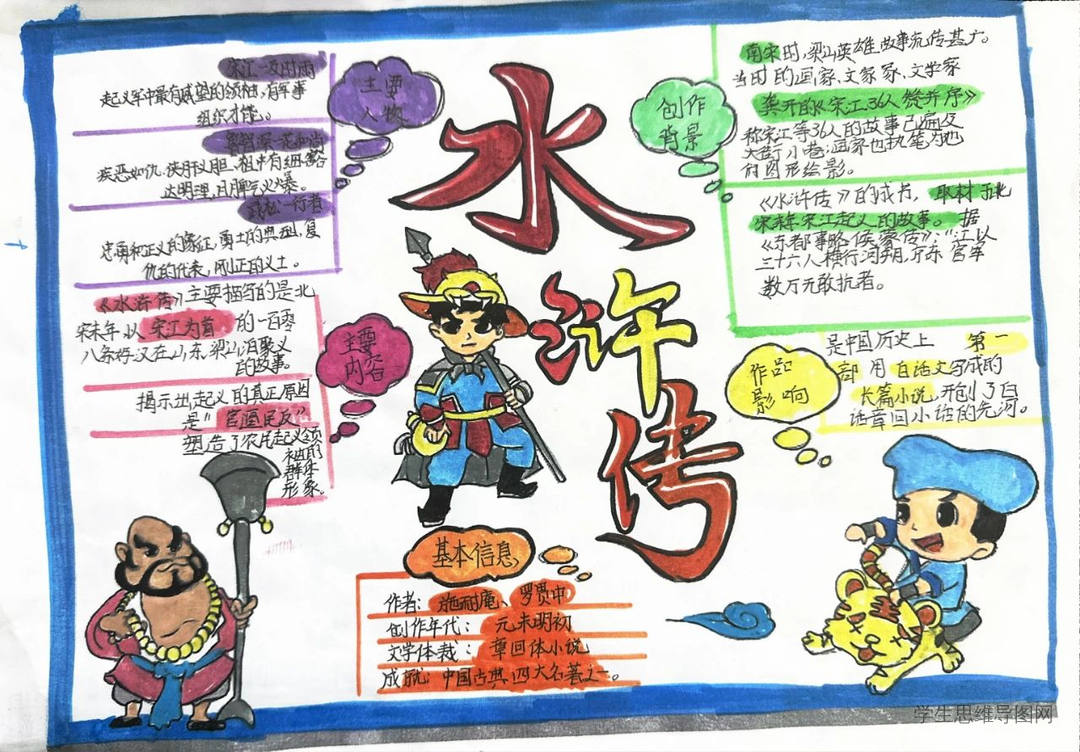 水
浒
传
主要
人物
宋江-及时雨
起义军中最有威望的领袖,有军事
组织才能。
鲁智深-花和尚
疾恶如仇,侠肝义胆、粗中有细、豁
达明理,且脾气火爆。
武松-行者
忠勇和正义的象征,勇士的典型,复
仇的代表,刚正的义士。
主要
内容
《水浒传》主要描写的是北
宋末年以宋江为首的一百零
八条好汉在山东梁山泊聚义
的故事。
揭示出起义的真正原因
是"官逼民反"
塑造了农民起义领
袖的
群体
形象。
创作
背景
南宋时,梁山英雄故事流传甚广。
当时的画家、文家冢、文学家
龚开的《宋江36人赞并序》
称宋江等36人的故事已遍及
大街小巷;画家也执笔为他
们图形绘影。
《水浒传》的成书,取材于北
宋末年宋江起义的故事。据
《东都事略·侯蒙传》:"江以
三十六人横行河朔,京东官军
数万无敢抗者。
作品
影响
是中国历史上第一
部用白话文写成的
长篇小说,开创了白
话章回小话的先河。
基本信息
作者:施耐庵、罗贯中
创作年代:元末明初
文学体裁:章回体小说
成就:中国古典四大名著之一。
学生思维导图网